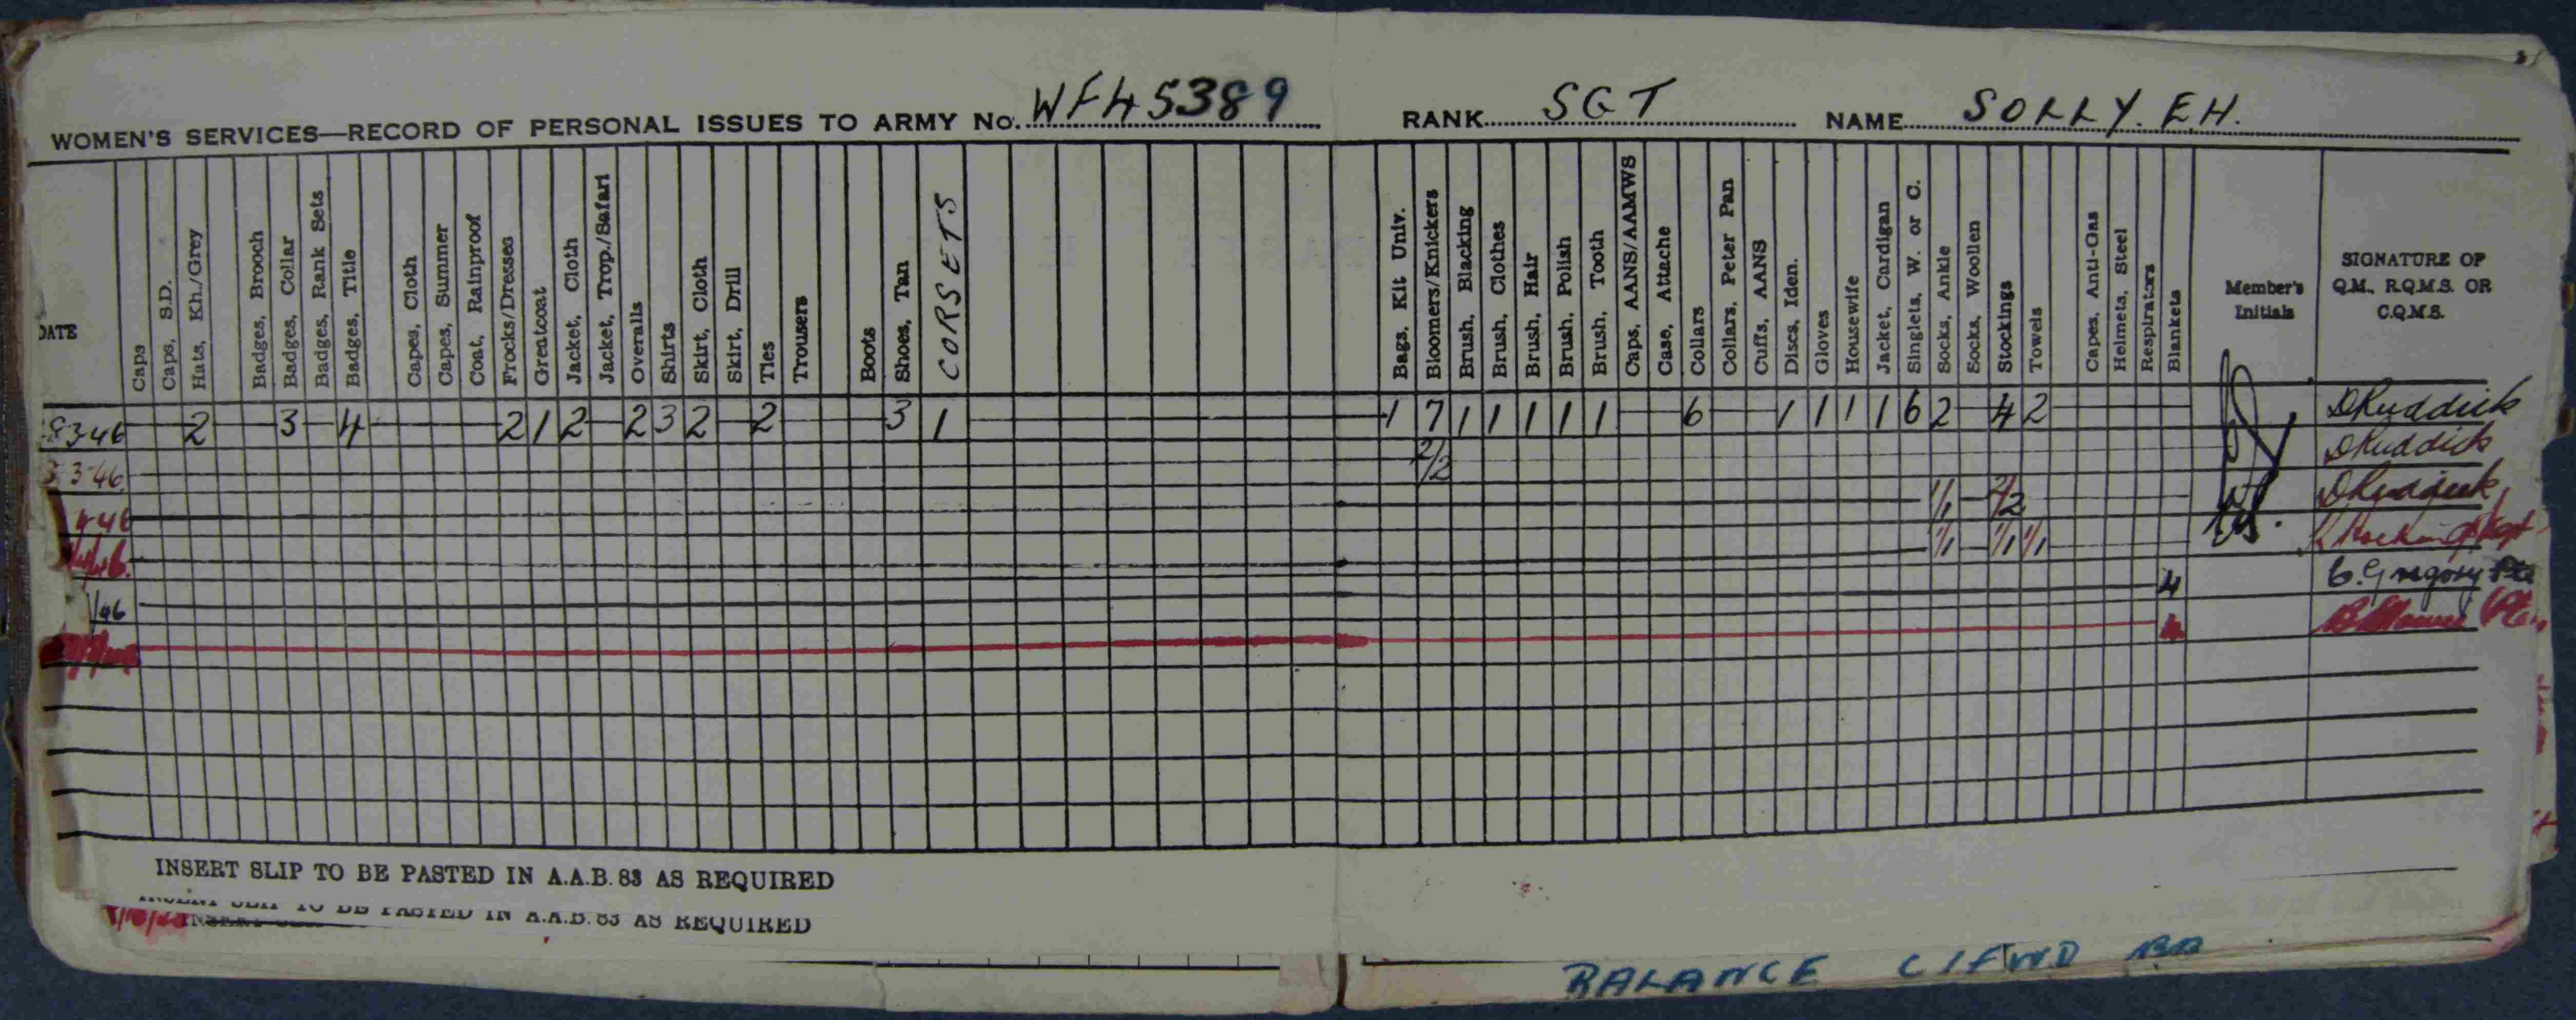 WOMEN'S SERVICES—RECORD OF PERSONAL ISSUES TO ARMY No. WF45389 RANK SGT NAME SOLLY. E.H.
DATE Caps Caps, S.D. Hats, Kh./Grey Badges, Brooch Badges, Collar Badges, Rank Sets Badges, Title Capes, Cloth Capes, Summer Coat, Rainproof Frocks/Dresses Greatcoat Jacket, Cloth Jacket, Trop./Safari Overalls Shirts Skirt, Cloth Skirt, Drill Ties Trousers Boots Shoes, Tan CORSETS Bags, Kit Univ. Bloomers/Knickers Brush, Blacking Brush, Clothes Brush, Hair Brush, Polish Brush, Tooth Caps, AANS/AAMWS Case, Attache Collars Collars, Peter Pan Cuffs, AANS Discs, Iden. Gloves Housewife Jacket, Cardigan Singlets, W. or C. Socks, Ankle Socks, Woollen Stockings Towels Capes, Anti-Gas Helmets, Steel Respirators Blankets Member's Initials SIGNATURE OF Q.M., R.Q.M.S. OR C.Q.M.S.
8-3-46 2 3 4 2 1 2 2 3 2 2 3 1 1 7 1 1 1 1 1 6 1 1 1 1 6 2 4 2 DRuddick
3-46 2/2 DRuddick
4-46 1/1 2/2 DRuddick
1/1 1/1 1/1
/46 4 Gregory Pte
4
INSERT SLIP TO BE PASTED IN A.A.B. 83 AS REQUIRED
INSERT SLIP TO BE PASTED IN A.A.B. 83 AS REQUIRED
BALANCE C/FWD